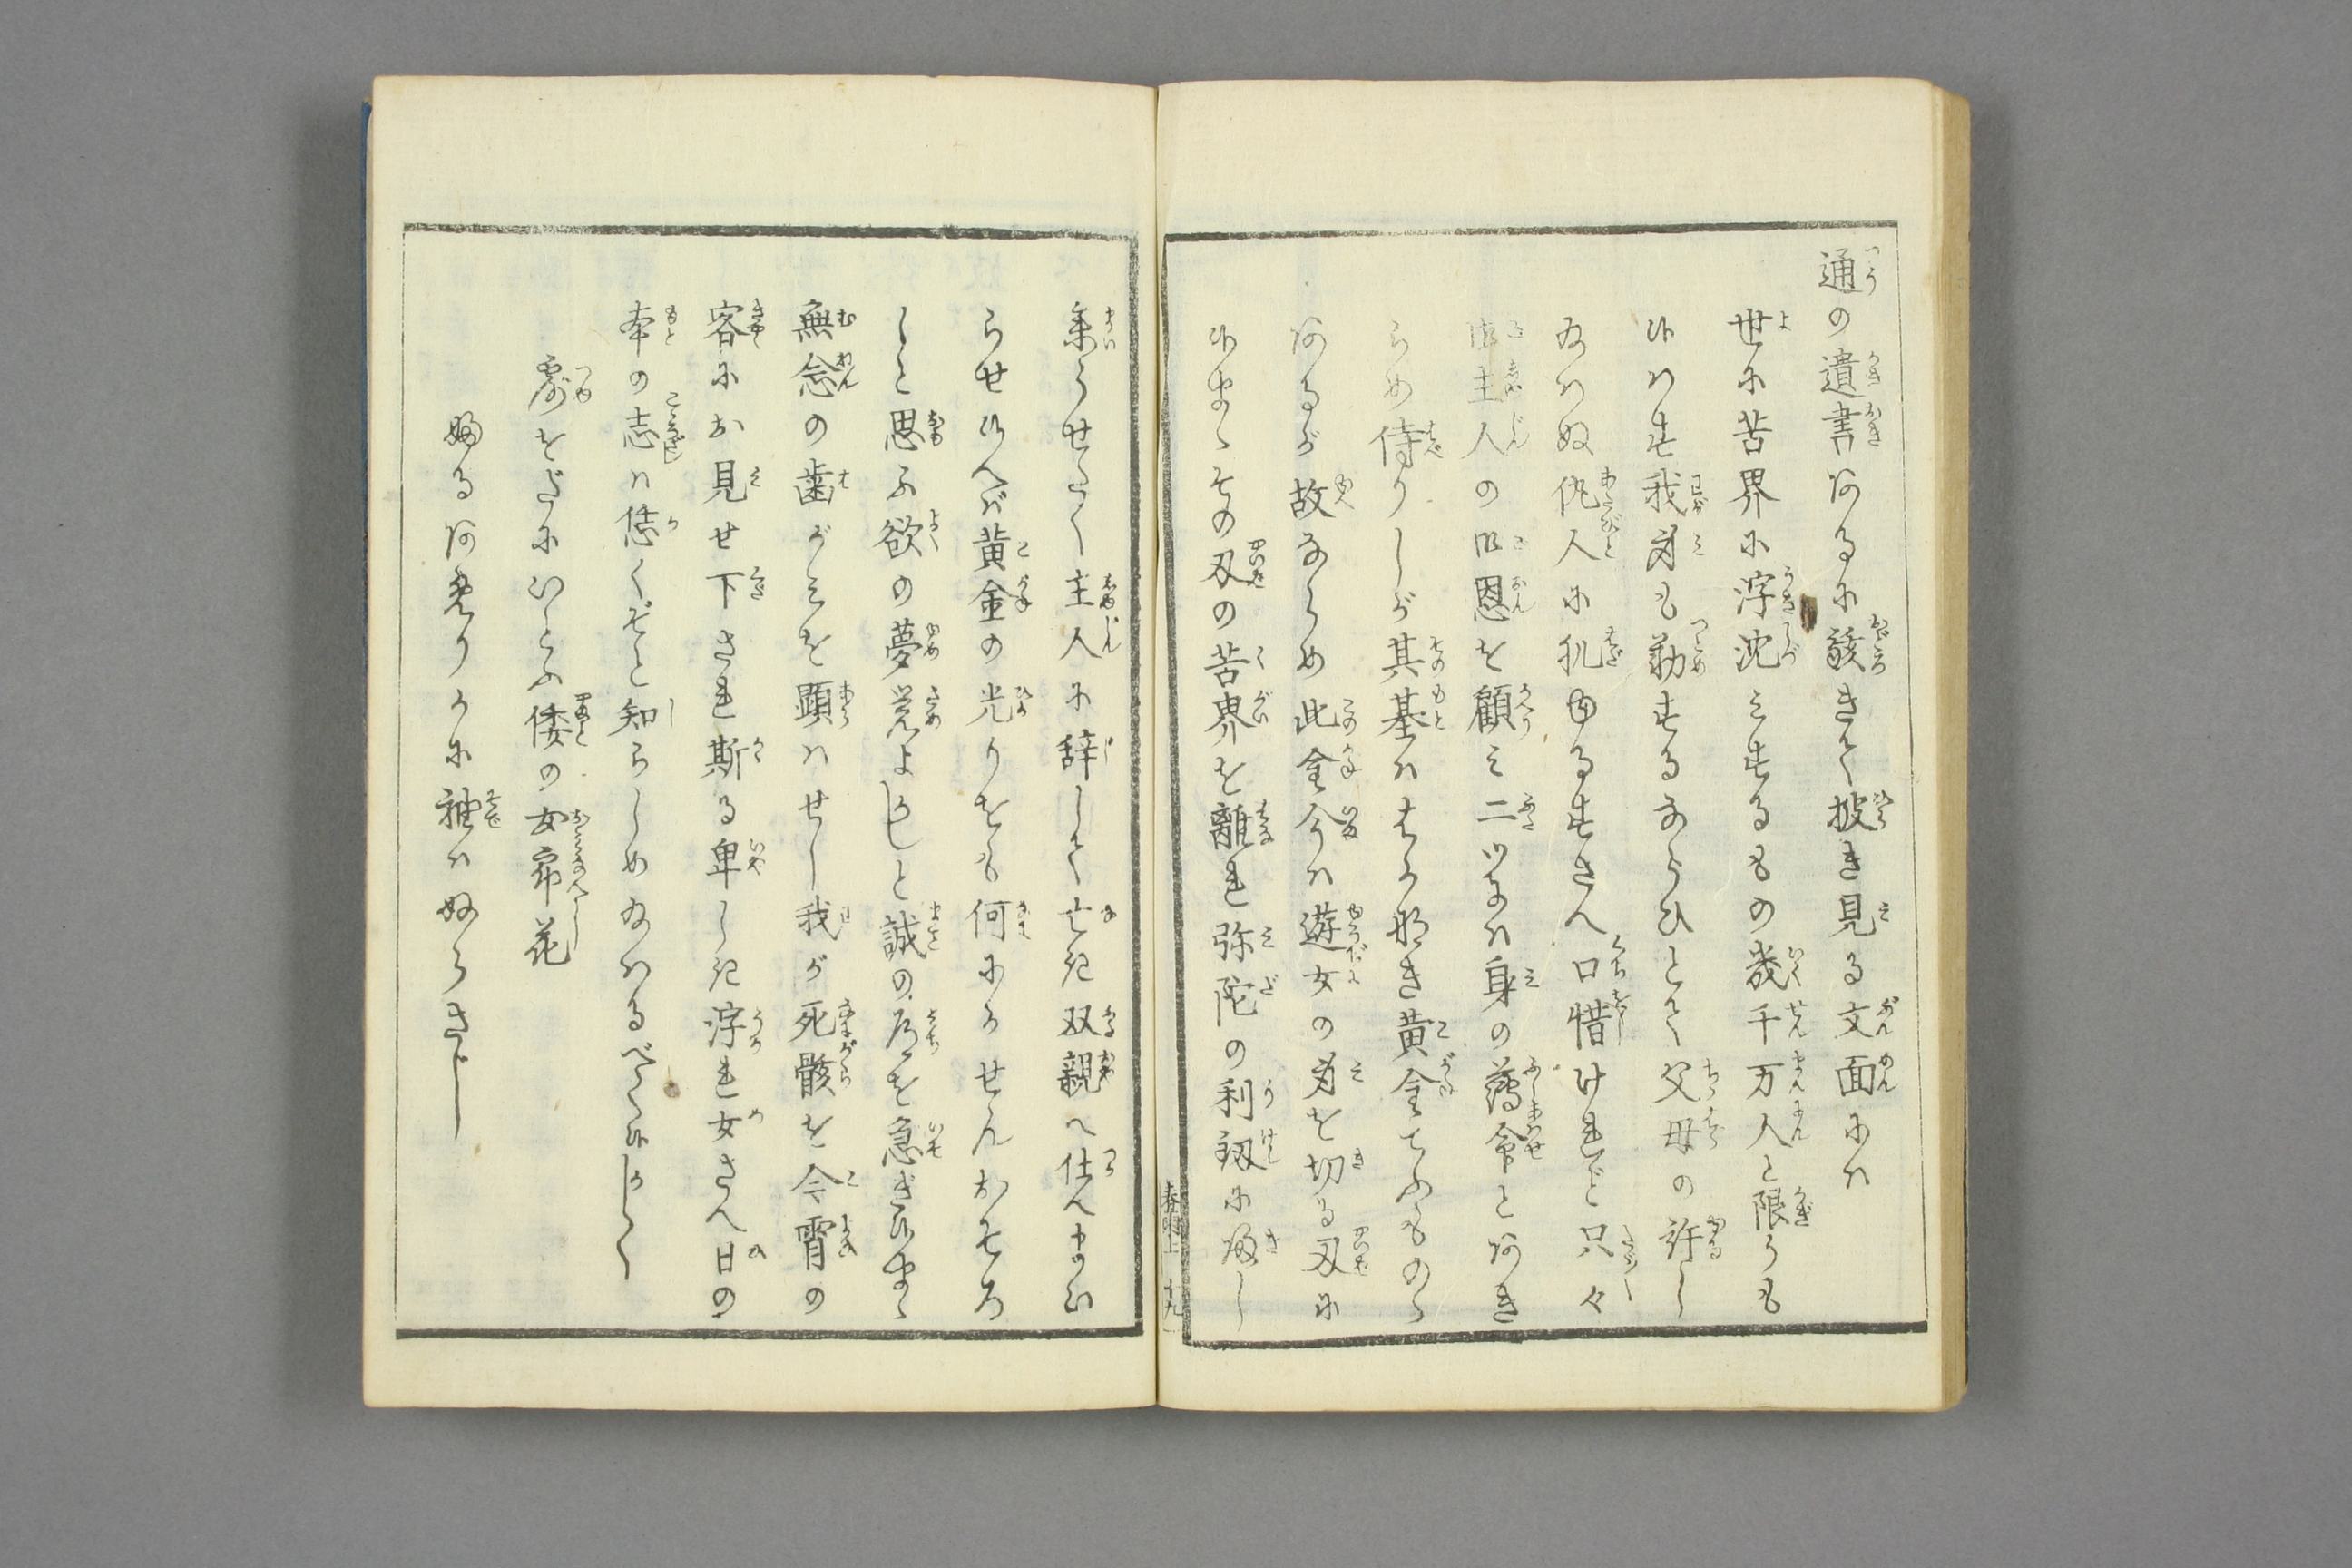 通の遺書あるに駭きて披き見る文面にハ
世に苦界に浮沈ミするもの幾千万人と限りも
候ハず我身も勤するならひとて父母の許し
給ハぬ仇人に肌ふるすさへ口惜けれど只々
御主人の御恩を顧ミ二ツにハ身の薄命とあき
らめ侍りしが其基ハはか那き黄金てふものゝ
あるが故ならめ此金今ハ遊女の身を切る刃に
候まゝその刃の苦界を離れ弥陀の利劔に帰し
参らせたく主人に辞して亡き双親へ仕へまい
らせ候へバ黄金の光りをも何にかせんおそろ
しと思ふ欲の夢覚よかしと誠の道を急ぎ候まゝ
無念の歯がミを顕ハせし我が死骸を今宵の
客にお見せ下され斯る卑しき浮れ女さへ日の
本の志ハ恁くぞと知らしめ給ハるべく候かしく
露をだにいとふ倭の女郎花
ふるあめりかに袖ハぬらさじ
春雨上 十九